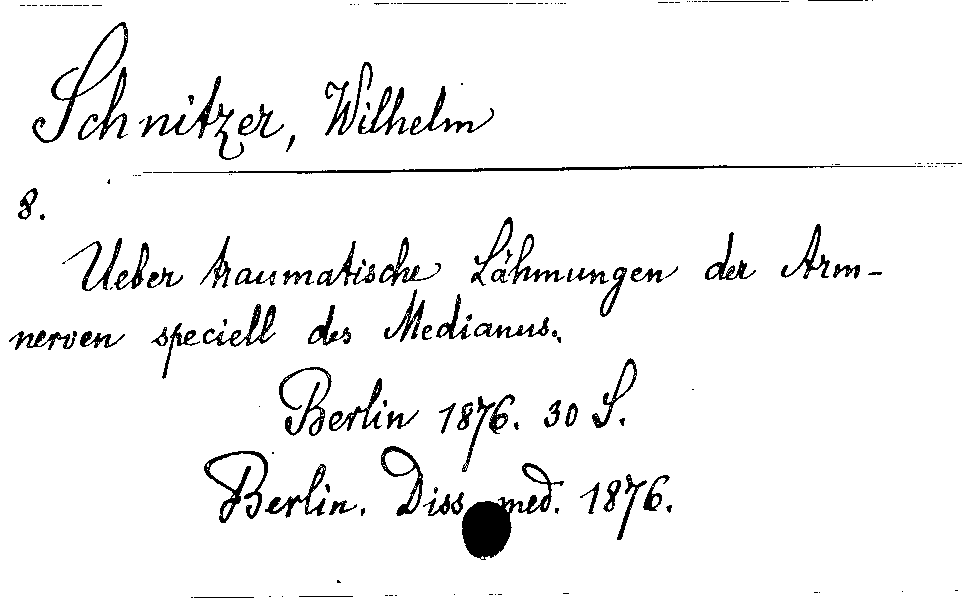 Schnitzer, Wilhelm
8.
Ueber traumatische Lähmungen der Arm-
nerven speciell des Medianus.
Berlin 1876. 30 S.
Berlin. Diss. med. 1876.